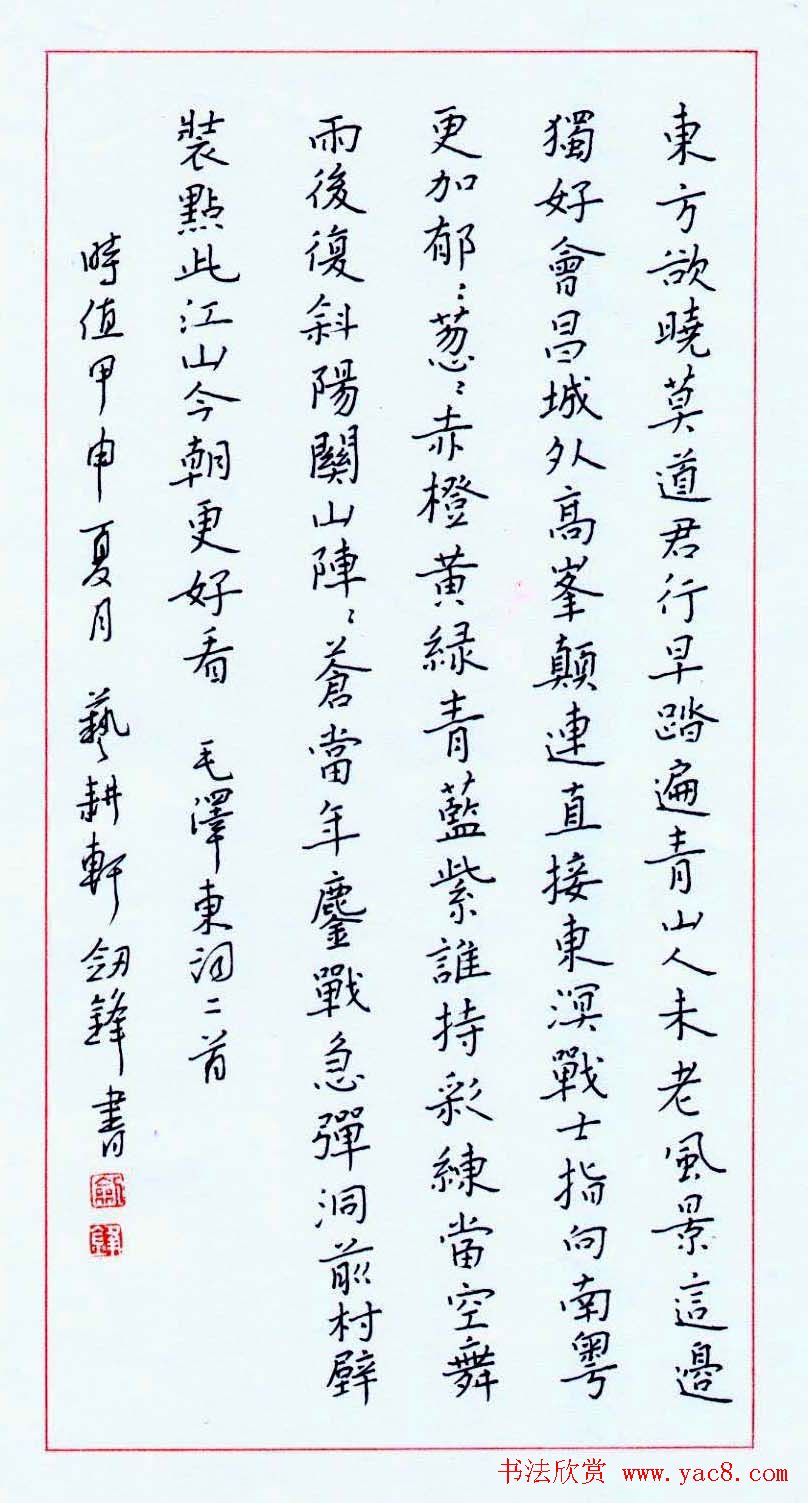 東方欲曉莫道君行早踏遍青山人未老風景這邊
獨好會昌城外高峯顛連直接東溟戰士指向南粵
更加郁〻葱〻赤橙黄緑青藍紫誰持彩練當空舞
雨後復斜陽關山陣〻蒼當年鏖戰急彈洞前村壁
裝點此江山今朝更好看 毛澤東詞二首
時值甲申夏月 藝耕軒劒鋒書
劍
鋒
书法欣赏 www.yac8.com